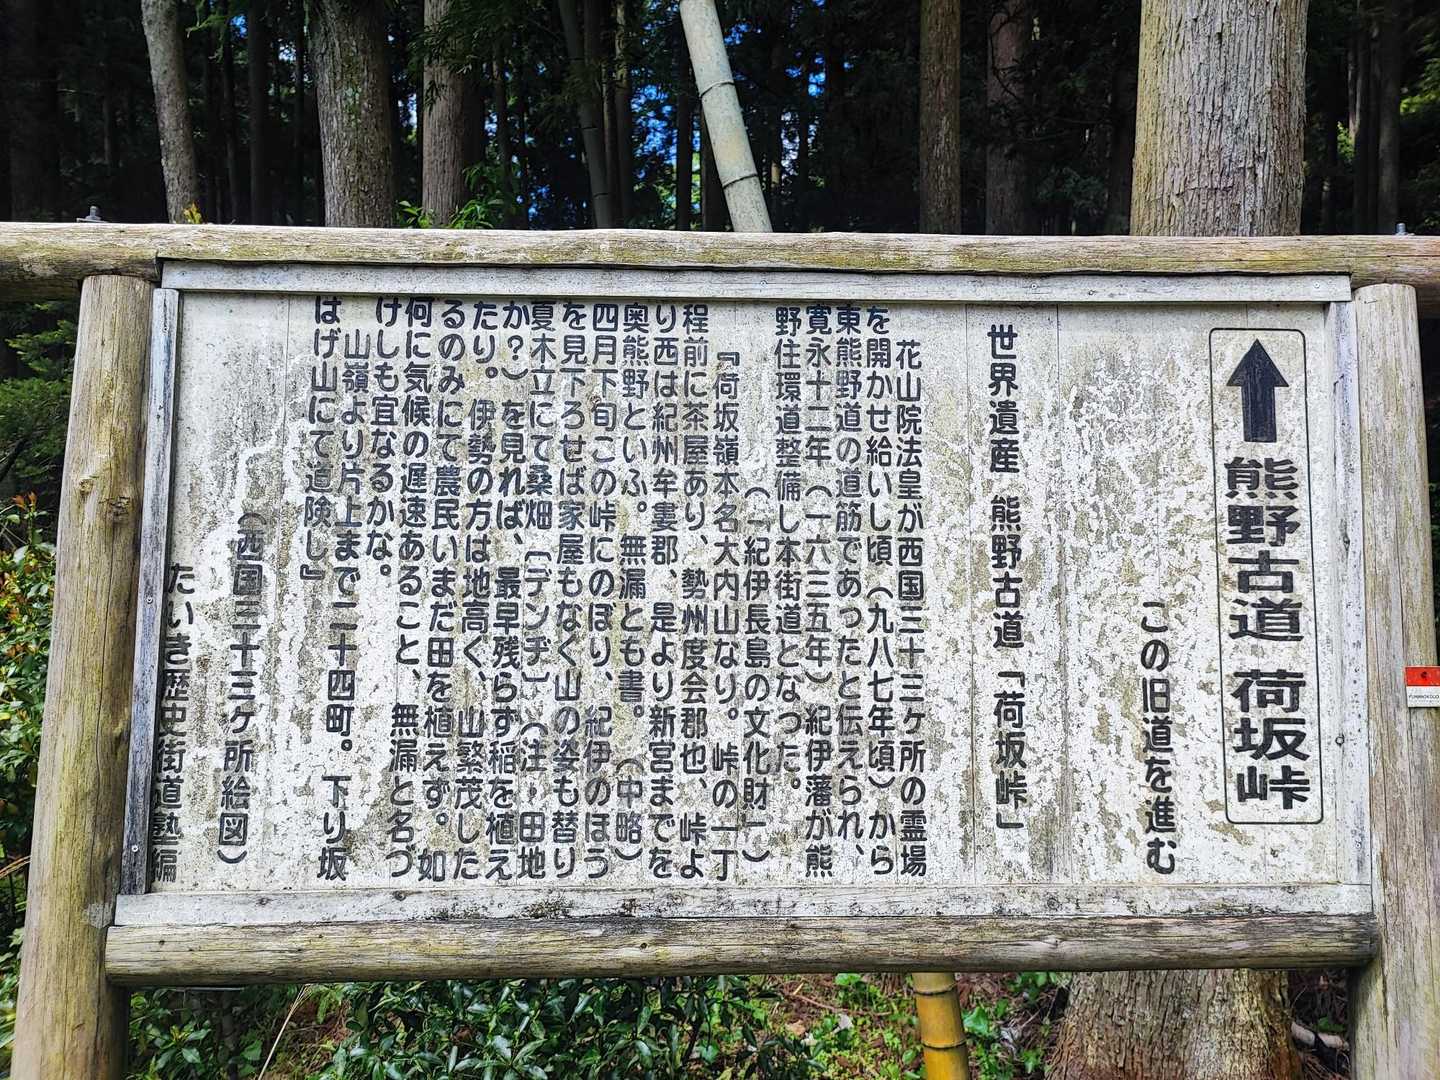 ↑ 熊野古道 荷坂峠
この旧道を進む
世界遺産 熊野古道「荷坂峠」
花山院法皇が西国三十三ヶ所の霊場
を開かせ給いし頃(九八七年頃)から
東熊野道の道筋であったと伝えられ、
寛永十二年(一六三五年)紀伊藩が熊
野住環道整備し本街道となった。
(「紀伊長島の文化財」)
『荷坂嶺本名大内山なり。峠の一丁
程前に茶屋あり、勢州度会郡也、峠よ
り西は紀州牟婁郡、是より新宮までを
奥熊野といふ。無漏とも書。(中略)
四月下旬この峠にのぼり、紀伊のほう
を見下ろせば家屋もなく山の姿も替り
夏木立にて桑畑〔デンヂ〕(注・田地
か?)を見れば、最早残らず稲を植え
たり。伊勢の方は地高く、山繁茂した
るのみにて農民いまだ田を植えず。如
何に気候の遅速あること、無漏と名づ
けしも宜なるかな。
山嶺より片上まで二十四町。下り坂
はげ山にて道険し』
(西国三十三ヶ所絵図)
たいき歴史街道塾編